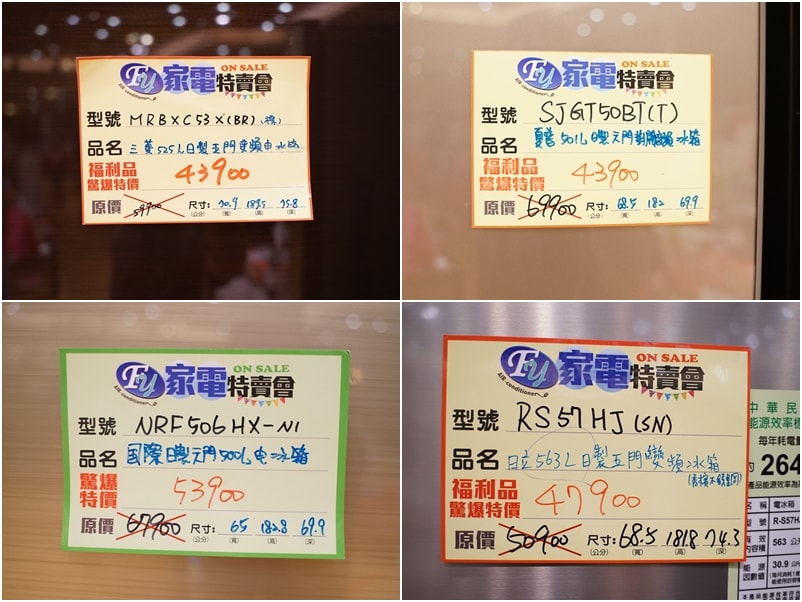 Fu 家電特賣會 ON SALE
AIR-conditioner
型號 MRBXC53X(BR)(棕)
品名 三菱525L日製五門變頻電冰箱
福利品
驚爆特價 43900
原價 59900 尺寸: 70.9 75.8
(公分) (寬) (高) (深)
Fu 家電特賣會 ON SALE
AIR-conditioner
型號 SJGT50BT(T)
品名 夏普501L日製六門對開變頻冰箱
福利品
驚爆特價 43900
原價 69900 尺寸: 68.5 182 69.9
(公分) (寬) (高) (深)
Fu 家電特賣會 ON SALE
AIR-conditioner
型號 NRF506HX-N1
品名 國際日製六門500L電冰箱
驚爆
特價 53900
原價 67900 尺寸: 65 182.8 69.9
(公分) (寬) (高) (深)
Fu 家電特賣會 ON SALE
AIR-conditioner
型號 RS57HJ(SN)
品名 日立563L日製五門變頻冰箱
福利品
驚爆特價 47900
原價 50900 尺寸: 68.5 181.8 74.3
(公分) (寬) (高) (深)
中華民
能源效率標
每年耗電量
約 264
名稱 電冰箱
型號 R-S57H
有效內容積 563 公升
能源因數值 30.9